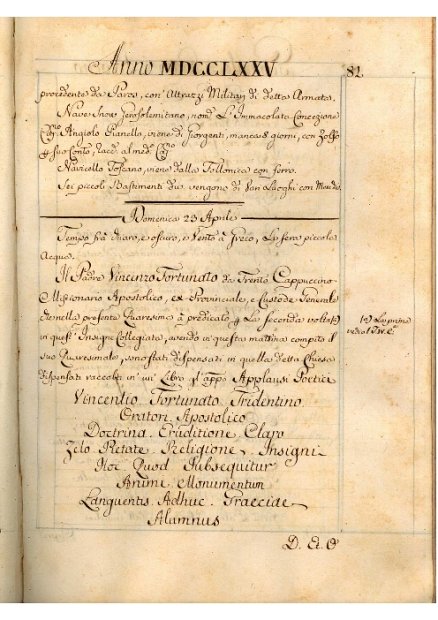 Anno MDCCLXXV
81
procedente da Paros, con' Attrazzi Militari di detta Armata.
Nave Gerosolimitano, nom.ª L'Immacolata Concezione
Cap.no Angiolo Pianello, viene di Girgenti, manca 8 giorni, con Zolfo
suo Conto, racc. al med.º Cap.no
Navicello Toscano, viene dalla Follonica con ferro.
Sei piccoli Bastimenti Div. vengono di Vari Luoghi con Mercd.e
Domenica 23 Aprile
Tempo frà chiaro, e oscuro, e Vento à Greco, La sera piccola
Acqua.
Il Padre Vincenzo Fortunato da Trento Cappuccino
Missionario Apostolico, ex-Provinciale, e Custode Generale
che nella presente Quaresima à predicato La seconda volta
in quest' Insigne Collegiata, avendo in questa mattina compito il
suo Quaresimale, sono stati dispensati in quella detta Chiesa
dispensati raccolti in un' Libro d'appo Applausi Poetici
Vincentio Fortunato Tridentino
Oratori Apostolico
Doctrina. Eruditione. Claro
Zelo Pietate. Religione. Insigni
Hoc Quod Subsequitur
Animi Monumentum
Languentis. Adhuc. Graeciae
Alumnus
D. Et. O
La prima